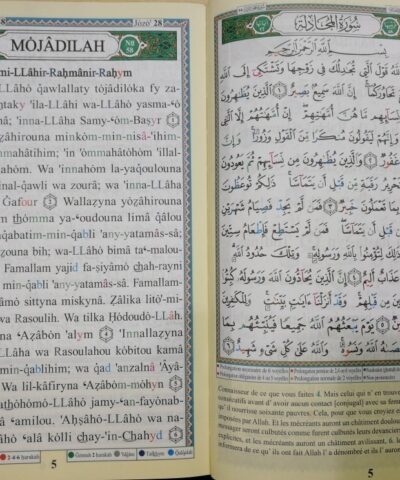 Jôzô' 28
MÔJÂDILAH
Nü 58
mi-LLâhir-Raḥmânir-Raḥym
LLâhô qawlallaty tojâdilôka fy za-
htaky 'ila-LLâhi wa-LLâhô yasma-'ô
mâ; 'inna-LLâha Samy-'ôm-Baṣyr
zâhirouna minkôm-min-nisâ-'ihim-
mmahâtihim; 'in 'ômmahâtôhôm 'illal-
lahom. Wa 'innahôm la-yaqoulouna
inal-qawli wa zourâ; wa 'inna-LLâha
Ğafour Wallazyna yôzâhirouna
m thômma ya-ʿoudouna limâ qâlou
qabatim-min-qabli 'any-yatamâs-sâ;
ouna bih; wa-LLâhô bimâ taʿ-malou-
Famallam yajid fa-ṣiyâmô chah-rayni
mi-qâbli 'any-yatamâs-sâ. Famallam-
âmô sittyna miskynâ. Zâlika litô'-mi-
wa Rasoulih. Wa tilka Ḥôdoudô-LLâh.
yna ʿAzâbôn 'alym 'Innallazyna
LLâha wa Rasoulahou kôbitou kamâ
min-qablihim; wa qad 'anzalnâ 'Âyâ-
Wa lil-kâfiryna ʿAzâbôm-môhyn
ʿathôhômô-LLâhô jamy-ʿan-fayônab-
â ʿamilou. 'Aḥṣâhô-LLâhô wa na-
hô ʿalâ kôlli chay-'in-Chahyd
5
سُورَةُ المُجَادلَة
بِسْمِ ٱللَّهِ ٱلرَّحْمَٰنِ ٱلرَّحِيمِ
ٱللَّهُ قَوْلَ ٱلَّتِي تُجَٰدِلُكَ فِي زَوْجِهَا وَتَشْتَكِيٓ إِلَى ٱللَّهِ
إِنَّ ٱللَّهَ سَمِيعٌۢ بَصِيرٌ ١ ٱلَّذِينَ يُظَٰهِرُونَ
نِّسَآئِهِم مَّا هُنَّ أُمَّهَٰتِهِمْ إِنْ أُمَّهَٰتُهُمْ إِلَّا ٱلَّٰٓـِٔي
وَإِنَّهُمْ لَيَقُولُونَ مُنكَرًا مِّنَ ٱلْقَوْلِ وَزُورًا وَإِنَّ ٱللَّهَ
٢ وَٱلَّذِينَ يُظَٰهِرُونَ مِن نِّسَآئِهِمْ ثُمَّ يَعُودُونَ
فَتَحْرِيرُ رَقَبَةٍ مِّن قَبْلِ أَن يَتَمَآسَّا ذَٰلِكُمْ تُوعَظُونَ
تَعْمَلُونَ خَبِيرٌ ٣ فَمَن لَّمْ يَجِدْ فَصِيَامُ شَهْرَيْنِ
مِن قَبْلِ أَن يَتَمَآسَّا فَمَن لَّمْ يَسْتَطِعْ فَإِطْعَامُ سِتِّينَ
ذَٰلِكَ لِتُؤْمِنُوا۟ بِٱللَّهِ وَرَسُولِهِۦ وَتِلْكَ حُدُودُ ٱللَّهِ
عَذَابٌ أَلِيمٌ ٤ إِنَّ ٱلَّذِينَ يُحَآدُّونَ ٱللَّهَ وَرَسُولَهُۥ كُبِتُوا۟
مِن قَبْلِهِمْ وَقَدْ أَنزَلْنَآ ءَايَٰتٍۭ بَيِّنَٰتٍ وَلِلْكَٰفِرِينَ
٥ يَوْمَ يَبْعَثُهُمُ ٱللَّهُ جَمِيعًا فَيُنَبِّئُهُم بِمَا
ٱللَّهُ وَنَسُوهُ وَٱللَّهُ عَلَىٰ كُلِّ شَىْءٍ شَهِيدٌ ٦
Connaisseur de ce que vous faites 4. Mais celui qui n' en trouve
consécutifs avant d' avoir aucun contact (conjugal) avec sa femme
qu' il nourrisse soixante pauvres. Cela, pour que vous croyiez en
imposées par Allah. Et les mécréants auront un châtiment doulou
messager seront culbutés comme furent culbutés leurs devanciers
explicites, et les mécréants auront un châtiment avilissant, 6. le
informera de ce qu' ils ont fait Allah l' a dénombré et ils l' auront
5